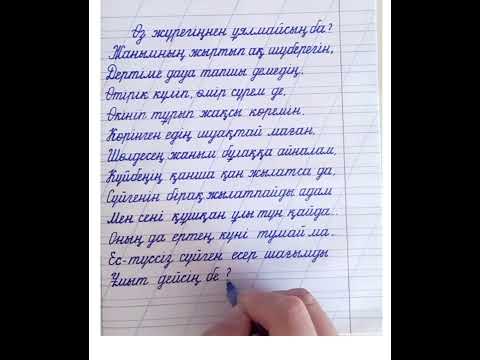 Өз жүрегіңнен ұялмайсың ба?
Жанымның жыртып ақ шүберегін,
Дертіме дауа тапшы демедің.
Өтірік күліп, өмір сүрем де,
Өкініп тұрып жақсы көремін.
Көрінген едің шуақтай маған,
Шөлдесең жаным бұлаққа айналам,
Күйбеңің қанша қан жылатса да,
Сүйгенін бірақ жылатпайды адам
Мен сені құшқан ұлы түн қайда..
Оның да ертең күні тумай ма.
Ес-түссіз сүйген есер шағымды
Ұмыт дейсің бе?